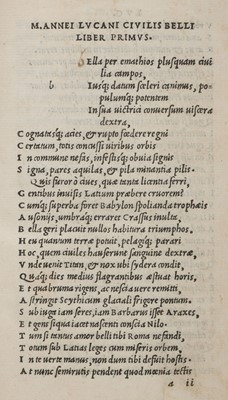 M. ANNEI LVCANI CIVILIS BELLI
LIBER PRIMVS.
Ella per emathios plusquam ciui
lia campos,
b Iusq; datum sceleri canimus, po-
pulumq; potentem
In sua uictrici conuersum uiscera
dextra,
Cognatasq; acies, & rupto fœdere regni
Certatum, totis concussi uiribus orbis
In commune nefas, infestisq; obuia signis
Signa, pares aquilas, & pila minantia pilis.
Quis furor ô ciues, quæ tanta licentia ferri,
Gentibus inuisis Latium præbere cruorem?
Cumq; superba foret Babylon spolianda trophæis
Ausonijs, umbraq; erraret Crassus inulta,
Bella geri placuit nullos habitura triumphos.
Heu quantum terræ potuit, pelagiq; parari
Hoc, quem ciuiles hauserunt sanguine dextræ.
Vnde uenit Titan, & nox ubi sydera condit,
Quaq; dies medius flagrantibus æstuat horis,
Et qua bruma rigens, ac nescia uere remitti,
Astringit Scythicum glaciali frigore pontum.
Sub iuga iam seres, iam Barbarus isset Araxes,
Et gens siqua iacet nascenti conscia Nilo.
Tum si tantus amor belli tibi Roma nefandi,
Totum sub Latias leges cum miseris orbem,
In te uerte manus, non dum tibi defuit hostis.
At nunc semirutis pendent quod mœnia tectis
a ii